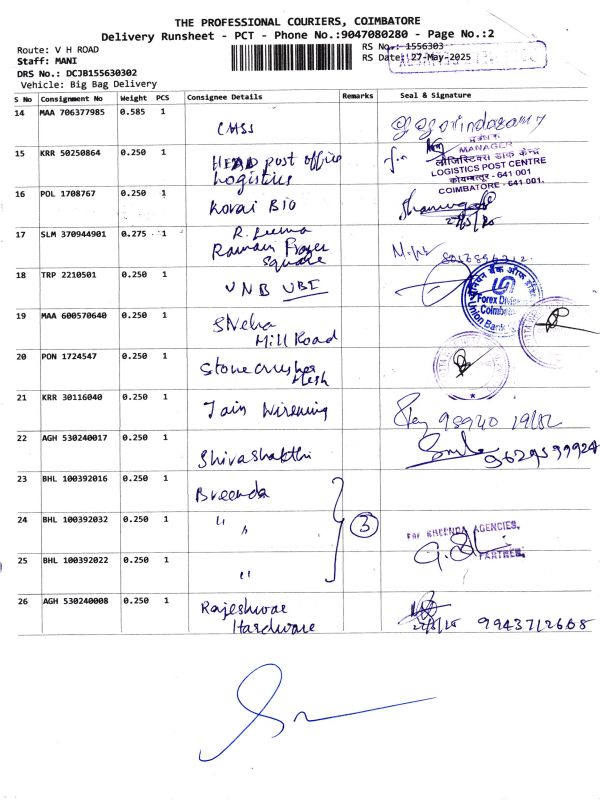 THE PROFESSIONAL COURIERS, COIMBATORE
Delivery Runsheet - PCT - Phone No.:9047080280 - Page No.:2
Route: V H ROAD
RS No.: 1556303
Staff: MANI
RS Date: 27-May-2025
DRS No.: DCJB155630302
Vehicle: Big Bag Delivery
S No Consignment No Weight PCS Consignee Details Remarks Seal & Signature
14 MAA 706377985 0.585 1 CMSS
15 KRR 50250864 0.250 1 HEAD post office
Logistics
MANAGER
लॉजिस्टिक्स डाक केन्द्र
LOGISTICS POST CENTRE
कोयम्बत्तूर - 641 001
COIMBATORE - 641 001.
16 POL 1708767 0.250 1 Kovai Bio
17 SLM 370944901 0.275 1 R. Leema
Ramani
Square
18 TRP 2210501 0.250 1 UNB UBI
Forex Divis
Coimbat
Union Bank
19 MAA 600570640 0.250 1 SNeha
Mill Road
20 PON 1724547 0.250 1 Stone crusher
Mesh
21 KRR 30116040 0.250 1 Jain
98940
22 AGH 530240017 0.250 1 Shivashakthi
9629599924
23 BHL 100392016 0.250 1 Breenda
24 BHL 100392032 0.250 1 " " 3
FOR BREENDA AGENCIES,
PARTNER
25 BHL 100392022 0.250 1 "
26 AGH 530240008 0.250 1 Rajeshwar
Hardware
9943712608